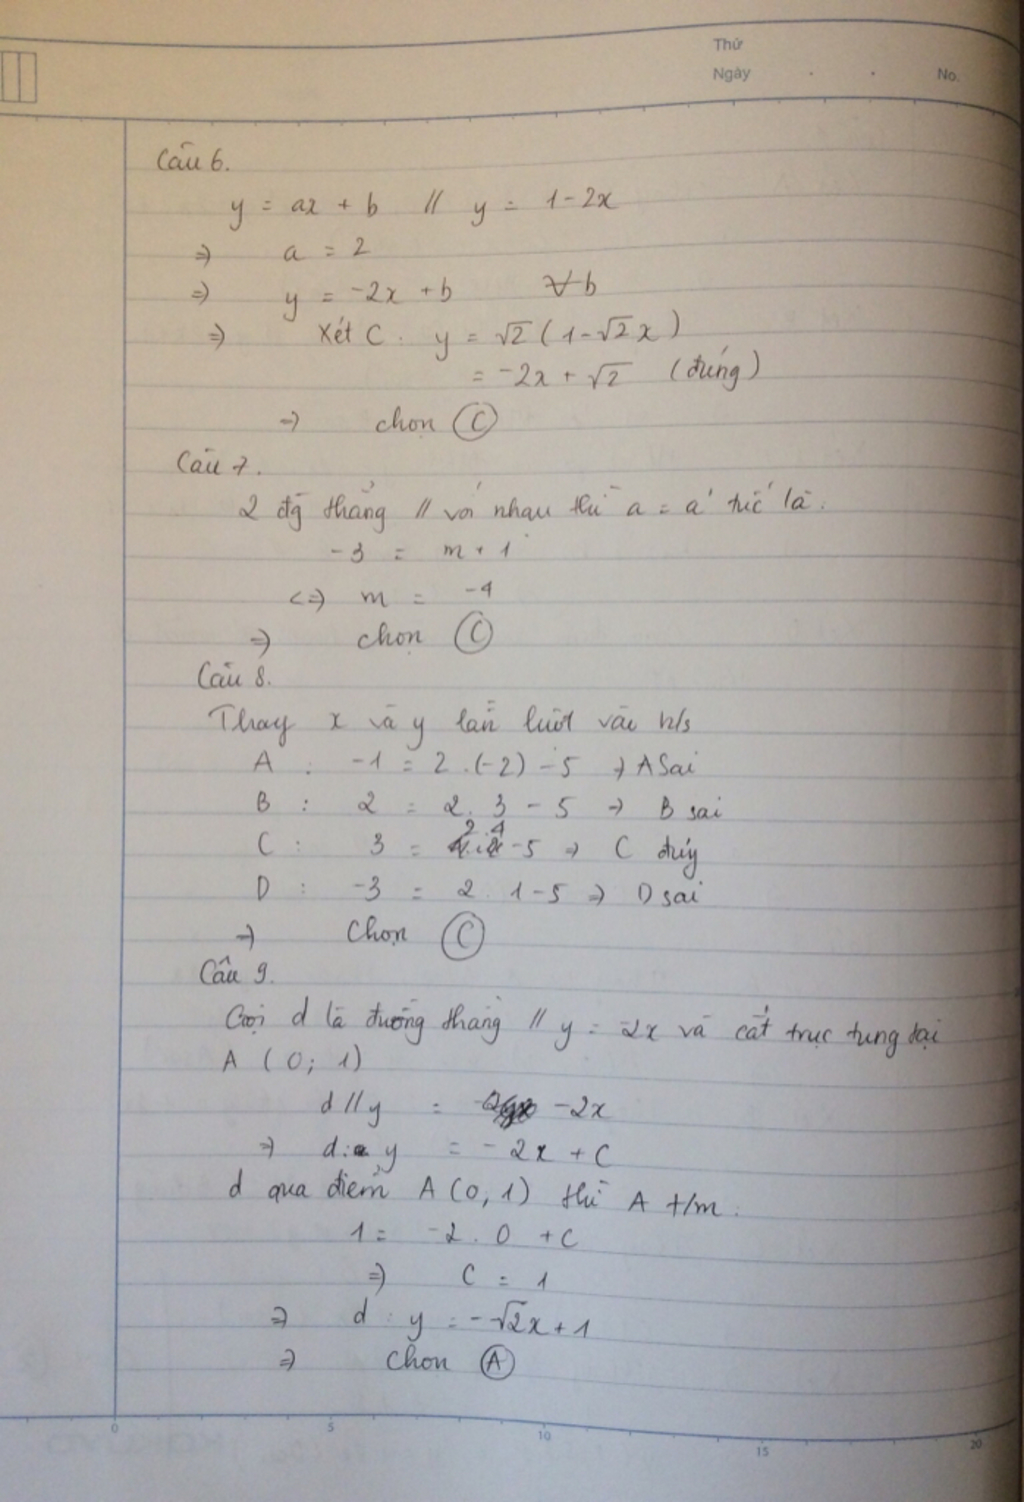 Thứ
Ngày . . No.
Câu 6.
y = ax + b // y = 1-2x
=> a = 2
=> y = -2x + b ∀b
=> Xét C. y = √2 (1-√2x)
= -2x + √2 (đúng)
=> chọn C
Câu 7.
2 đg thẳng // với nhau thì a = a' tức là.
-3 = m + 1
<=> m = -4
=> chọn C
Câu 8.
Thay x và y lần lượt vào h/s
A : -1 = 2.(-2) -5 => A Sai
B : 2 = 2. 3 - 5 => B sai
C : 3 = 2.4 -5 => C đúng
D : -3 = 2. 1-5 => D sai
=> Chọn C
Câu 9.
Gọi d là đường thẳng // y = -2x và cắt trục tung tại
A (0; 1)
d // y = -2x
=> d: y = -2x + C
d qua điểm A (0, 1) thì A t/m :
1 = -2. 0 + C
=> C = 1
=> d : y = -√2x + 1
=> Chọn A
0 5 10 15 20